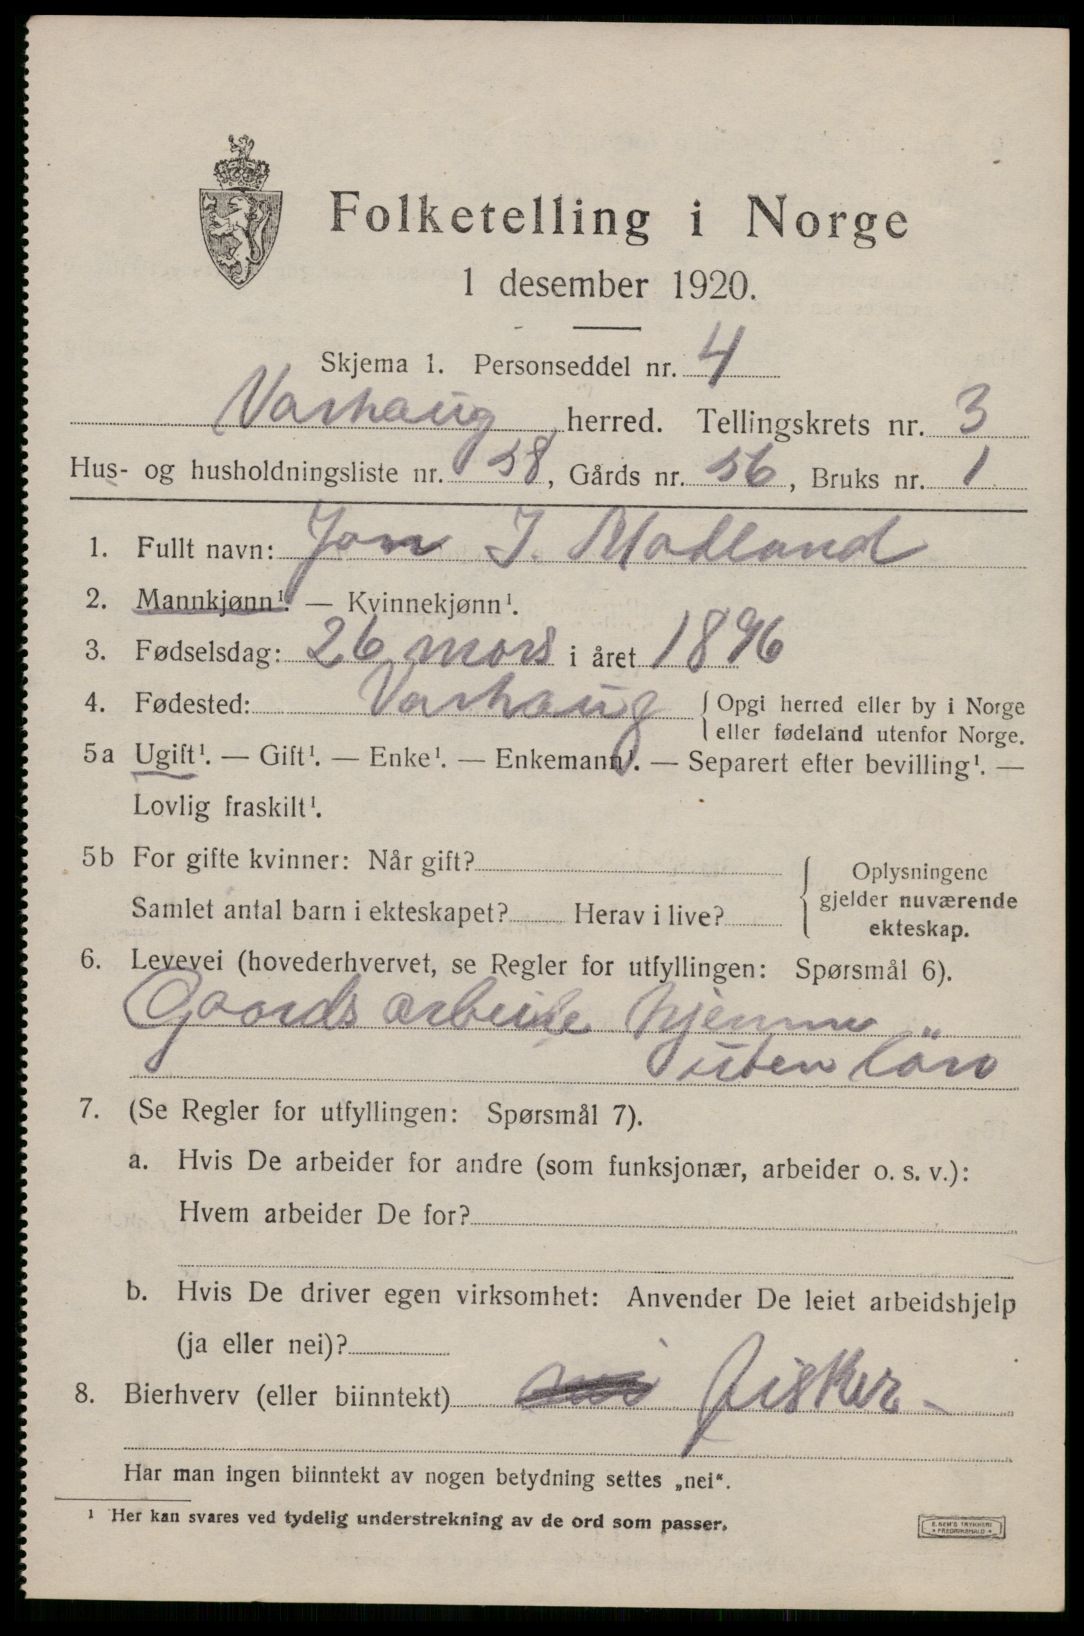 Folketelling i Norge
1 desember 1920.
Skjema 1. Personseddel nr. 4
Varhaug herred. Tellingskrets nr. 3
Hus- og husholdningsliste nr. 58, Gårds nr. 56, Bruks nr. 1
1. Fullt navn: Jon J. Madland
2. Mannkjønn¹. — Kvinnekjønn¹.
3. Fødselsdag: 26 mars i året 1896
4. Fødested: Varhaug { Opgi herred eller by i Norge
eller fødeland utenfor Norge.
5a Ugift¹. — Gift¹. — Enke¹. — Enkemann¹. — Separert efter bevilling¹. —
Lovlig fraskilt¹.
5b For gifte kvinner: Når gift?
Samlet antal barn i ekteskapet? Herav i live?
{ Oplysningene
gjelder nuværende
ekteskap.
6. Levevei (hovederhvervet, se Regler for utfyllingen: Spørsmål 6).
Gaards arbeide hjemme
uten lön
7. (Se Regler for utfyllingen: Spørsmål 7).
a. Hvis De arbeider for andre (som funksjonær, arbeider o. s. v.):
Hvem arbeider De for?
b. Hvis De driver egen virksomhet: Anvender De leiet arbeidshjelp
(ja eller nei)?
8. Bierhverv (eller biinntekt) fisker –
Har man ingen biinntekt av nogen betydning settes „nei“.
¹ Her kan svares ved tydelig understrekning av de ord som passer.
E. SEM'S TRYKKERI
FREDRIKSHALD